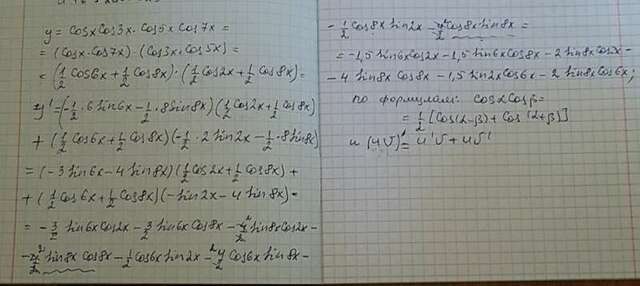 y = cosx cos3x · cos5x cos7x =
= (cosx · cos7x) · (cos3x · cos5x) =
= (1/2 cos6x + 1/2 cos8x) · (1/2 cos2x + 1/2 cos8x) =
y' = (-1/2 · 6 sin6x - 1/2 · 8 sin8x) (1/2 cos2x + 1/2 cos8x)
+ (1/2 cos6x + 1/2 cos8x) (-1/2 · 2 sin2x - 1/2 · 8 sin8x)
= (-3 sin6x - 4 sin8x) (1/2 cos2x + 1/2 cos8x) +
+ (1/2 cos6x + 1/2 cos8x) (-sin2x - 4 sin8x) =
= -3/2 sin6x cos2x - 3/2 sin6x cos8x - 4/2 sin8x cos2x -
- 4/2 sin8x cos8x - 1/2 cos6x sin2x - 4/2 cos6x sin8x -
- 1/2 cos8x sin2x - 4/2 cos8x sin8x =
= -1,5 sin6x cos2x - 1,5 sin6x cos8x - 2 sin8x cos2x -
- 4 sin8x cos8x - 1,5 sin2x cos6x - 2 sin8x cos6x;
по формулам: cosα cosβ =
= 1/2 [cos(α-β) + cos(α+β)]
и (UV)' = U'V + UV'